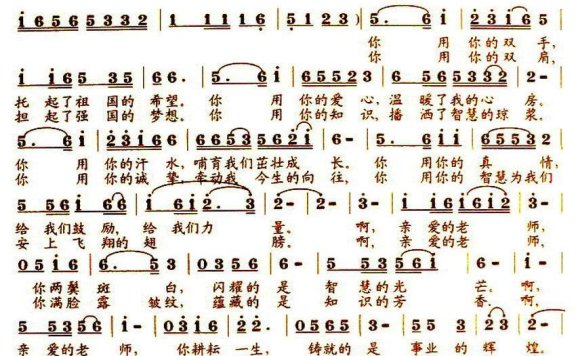 i 6 5 6 5 3 3 2 | 1 1 1 1 6 | 5 1 2 3 ) | 5. 6 i | 2 3 i 6 5 |
你 用 你的双 手,
你 用 你的双 肩,
i i 6 5 3 5 | 6 6. | 5. 6 i | 6 5 5 2 3 | 6 5 6 5 3 3 2 | 2 - |
托 起了祖 国的 希望。 你 用 你的爱 心,温 暖了我的心 房。
担 起了强 国的 梦想。 你 用 你的知 识,播 洒了智慧的琼 浆。
5. 6 i | 2 3 i 6 6 | 6 6 5 3 5 6 2 i | 6 - | 5. i i | 6 5 5 3 2 |
你 用 你的汗 水,哺育我们茁壮成 长。你 用你的 真 情,
你 用 你的诚 挚,牵动我 今生的向 往,你 用你的 智慧为我们
5 5 6 i 6 6 | i 6 i 2. 3 | 2 - | 2 - 3 | i 6 i 6 i 2 | 3 - |
给 我们鼓 励,给 我们力 量。 啊,亲 爱的老 师,
安 上飞 翔的翅 膀。 啊,亲 爱的老 师,
0 5 1 6 | 6. 5 3 | 0 3 5 6 | 6 - | 5 5 3 5 6 i | 6 - i |
你两鬓 斑 白, 闪耀的 是 智 慧的光 芒。啊,
你满脸露 皱纹, 蕴藏的 是 知 识的芳 香。啊,
5 5 3 5 6 | i - | 0 3 1 6 | 2 2. | 0 2 3 5 | 5 - | 5 5 5 3 | 5 - |
亲 爱的老 师, 你耕耘 一生, 铸就的 是 事业的 辉 煌。